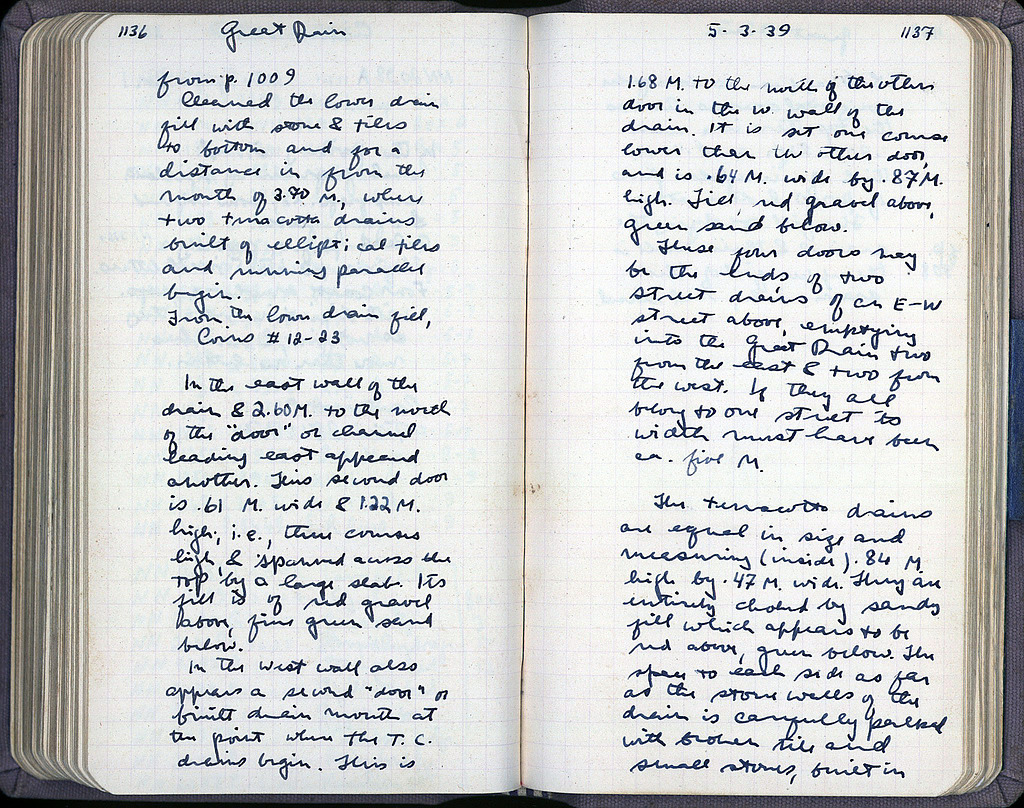 1136 Great Drain
from p. 1009
Cleaned the lower drain
fill with stone & tiles
to bottom and for a
distance in from the
mouth of 3.70 M., where
two terracotta drains
built of elliptical tiles
and running parallel
begin.
From the lower drain fill,
Coins # 12-23
In the east wall of the
drain & 2.60 M. to the north
of the "door" or channel
leading east appeared
another. This second door
is .61 M. wide & 1.22 M.
high, i.e., three courses
high, & spanned across the
top by a large slab. Its
fill is of red gravel
above, fine green sand
below.
In the west wall also
appears a second "door" or
built drain mouth at
the point where the T.C.
drains begin. This is
5-3-39 1137
1.68 M. to the north of the other
door in the w. wall of the
drain. It is set one course
lower than the other door,
and is .64 M. wide by .87 M.
high. Fill red gravel above,
green sand below.
These four doors may
be the ends of two
street drains of an E-W
street above, emptying
into the Great Drain two
from the east & two from
the west. If they all
belong to one street its
width must have been
ca. five M.
The terracotta drains
are equal in size and
measuring (inside) .84 M
high by .47 M. wide. They are
entirely choked by sandy
fill which appears to be
red above, green below. The
space to each side as far
as the stone walls of the
drain is carefully packed
with broken tile and
small stones, built in